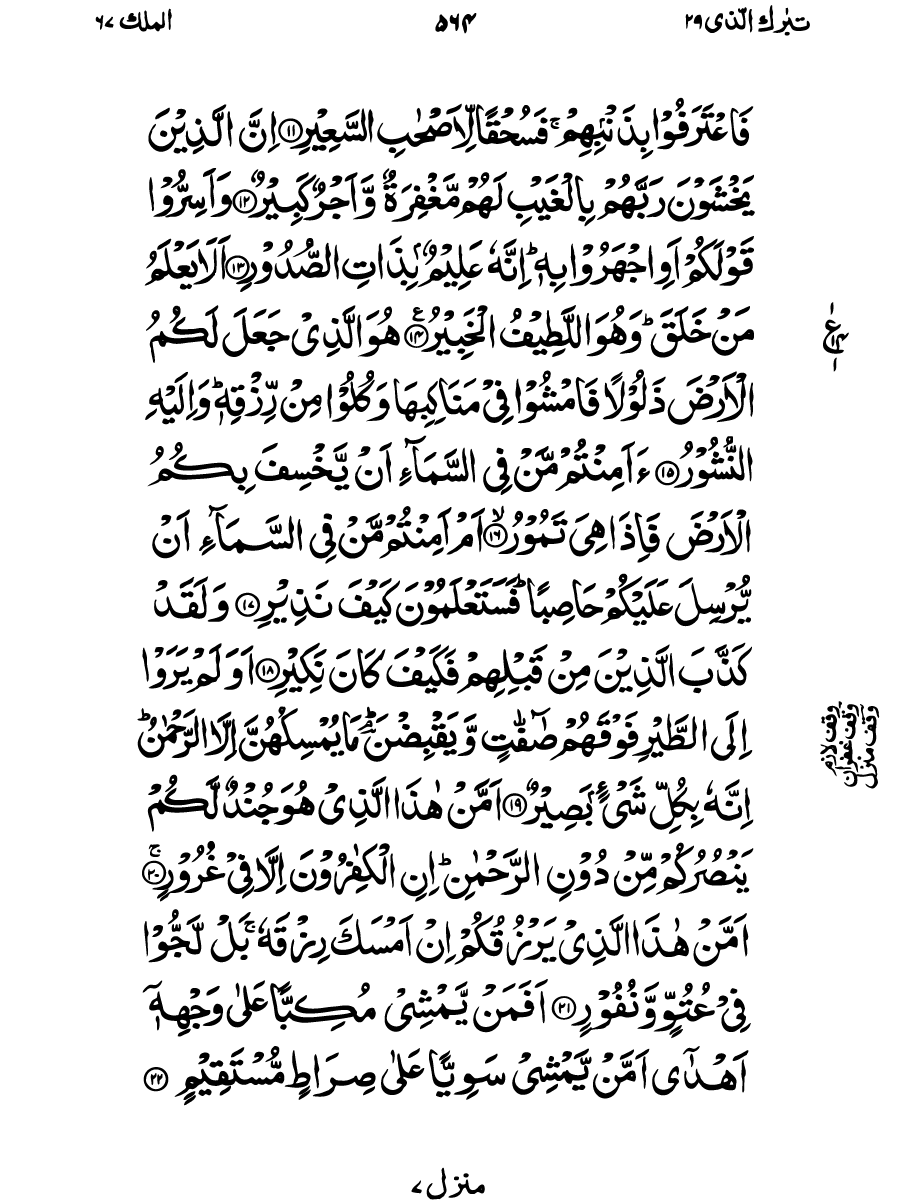 تبٰرك الّذی ۲۹
۵۶۴
الملك ۶۷
فَاعْتَرَفُوْا بِذَنْۢبِهِمْ ۚ فَسُحْقًا لِّاَصْحٰبِ السَّعِيْرِ ﴿۱۱﴾ اِنَّ الَّذِيْنَ
يَخْشَوْنَ رَبَّهُمْ بِالْغَيْبِ لَهُمْ مَّغْفِرَةٌ وَّاَجْرٌ كَبِيْرٌ ﴿۱۲﴾ وَاَسِرُّوْا
قَوْلَكُمْ اَوِ اجْهَرُوْا بِهٖ ؕ اِنَّهٗ عَلِيْمٌۢ بِذَاتِ الصُّدُوْرِ ﴿۱۳﴾ اَلَا يَعْلَمُ
مَنْ خَلَقَ ؕ وَهُوَ اللَّطِيْفُ الْخَبِيْرُ ﴿۱۴﴾ هُوَ الَّذِیْ جَعَلَ لَكُمُ
الْاَرْضَ ذَلُوْلًا فَامْشُوْا فِیْ مَنَاكِبِهَا وَكُلُوْا مِنْ رِّزْقِهٖ ؕ وَاِلَيْهِ
النُّشُوْرُ ﴿۱۵﴾ ءَاَمِنْتُمْ مَّنْ فِی السَّمَآءِ اَنْ يَّخْسِفَ بِكُمُ
الْاَرْضَ فَاِذَا هِیَ تَمُوْرُ ۙ﴿۱۶﴾ اَمْ اَمِنْتُمْ مَّنْ فِی السَّمَآءِ اَنْ
يُّرْسِلَ عَلَيْكُمْ حَاصِبًا ؕ فَسَتَعْلَمُوْنَ كَيْفَ نَذِيْرِ ﴿۱۷﴾ وَلَقَدْ
كَذَّبَ الَّذِيْنَ مِنْ قَبْلِهِمْ فَكَيْفَ كَانَ نَكِيْرِ ﴿۱۸﴾ اَوَلَمْ يَرَوْا
اِلَی الطَّيْرِ فَوْقَهُمْ صٰٓفّٰتٍ وَّيَقْبِضْنَ ؔۘؕ مَا يُمْسِكُهُنَّ اِلَّا الرَّحْمٰنُ ؕ
اِنَّهٗ بِكُلِّ شَیْءٍۭ بَصِيْرٌ ﴿۱۹﴾ اَمَّنْ هٰذَا الَّذِیْ هُوَ جُنْدٌ لَّكُمْ
يَنْصُرُكُمْ مِّنْ دُوْنِ الرَّحْمٰنِ ؕ اِنِ الْكٰفِرُوْنَ اِلَّا فِیْ غُرُوْرٍ ۚ﴿۲۰﴾
اَمَّنْ هٰذَا الَّذِیْ يَرْزُقُكُمْ اِنْ اَمْسَكَ رِزْقَهٗ ۚ بَلْ لَّجُّوْا
فِیْ عُتُوٍّ وَّنُفُوْرٍ ﴿۲۱﴾ اَفَمَنْ يَّمْشِیْ مُكِبًّا عَلٰی وَجْهِهٖۤ
اَهْدٰۤی اَمَّنْ يَّمْشِیْ سَوِيًّا عَلٰی صِرَاطٍ مُّسْتَقِيْمٍ ﴿۲۲﴾
۱
ع
۱۴
۱
وقف لازم
وقف غفران
وقف منزل
منزل ۷